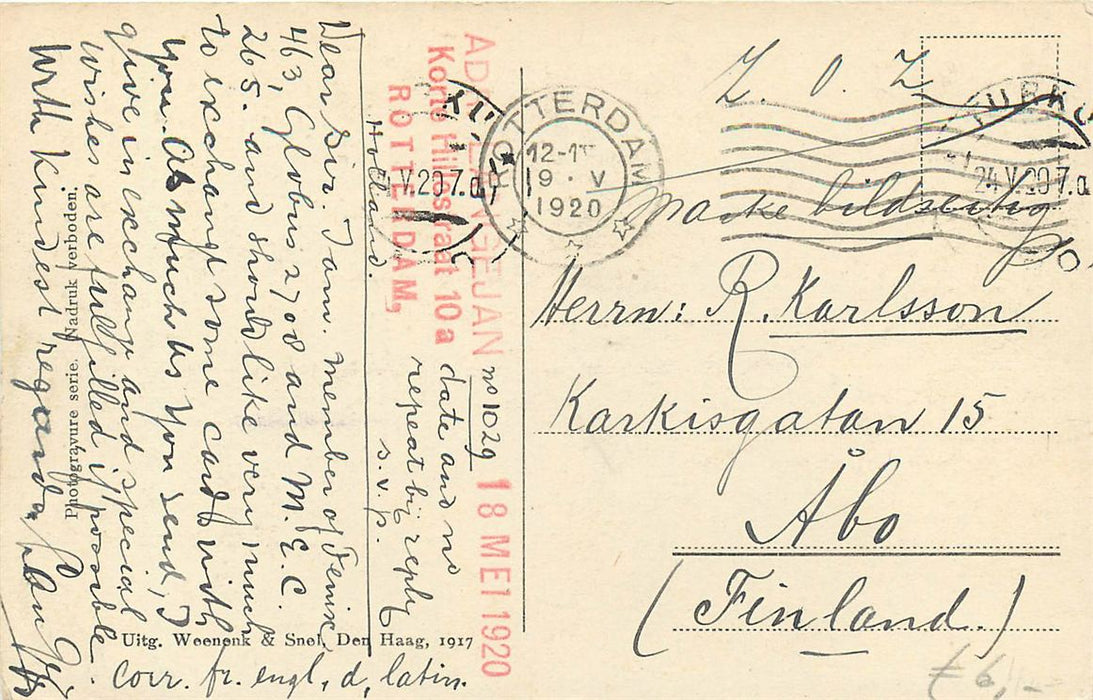 ADR. LANGEJAN
Korte Hillestraat 10a
ROTTERDAM,
Holland.
no 1029
18 MEI 1920
date and no
repeat bij reply
s.v.p.
Dear Sir. I am. member of Fenise
463, Globus 2708 and M. E. C.
265. and should like very much
to exchange some cards with
you. As much as you send, I
give in exchange and special
wishes are fulfilled if possible.
With kindest regards,
corr. fr. engl, d, latin.
Photogravure serie. Nadruk verboden.
Uitg. Weenenk & Snel, Den Haag, 1917
ROTTERDAM
12-1
19 · V
1920
V.20 7.a
TURKU
24 V.20 7.a
Z. O. Z
Marke bildseitig
Herrn: R. Karlsson
Karkisgatan 15
Åbo
(Finland.)
£ 6,-